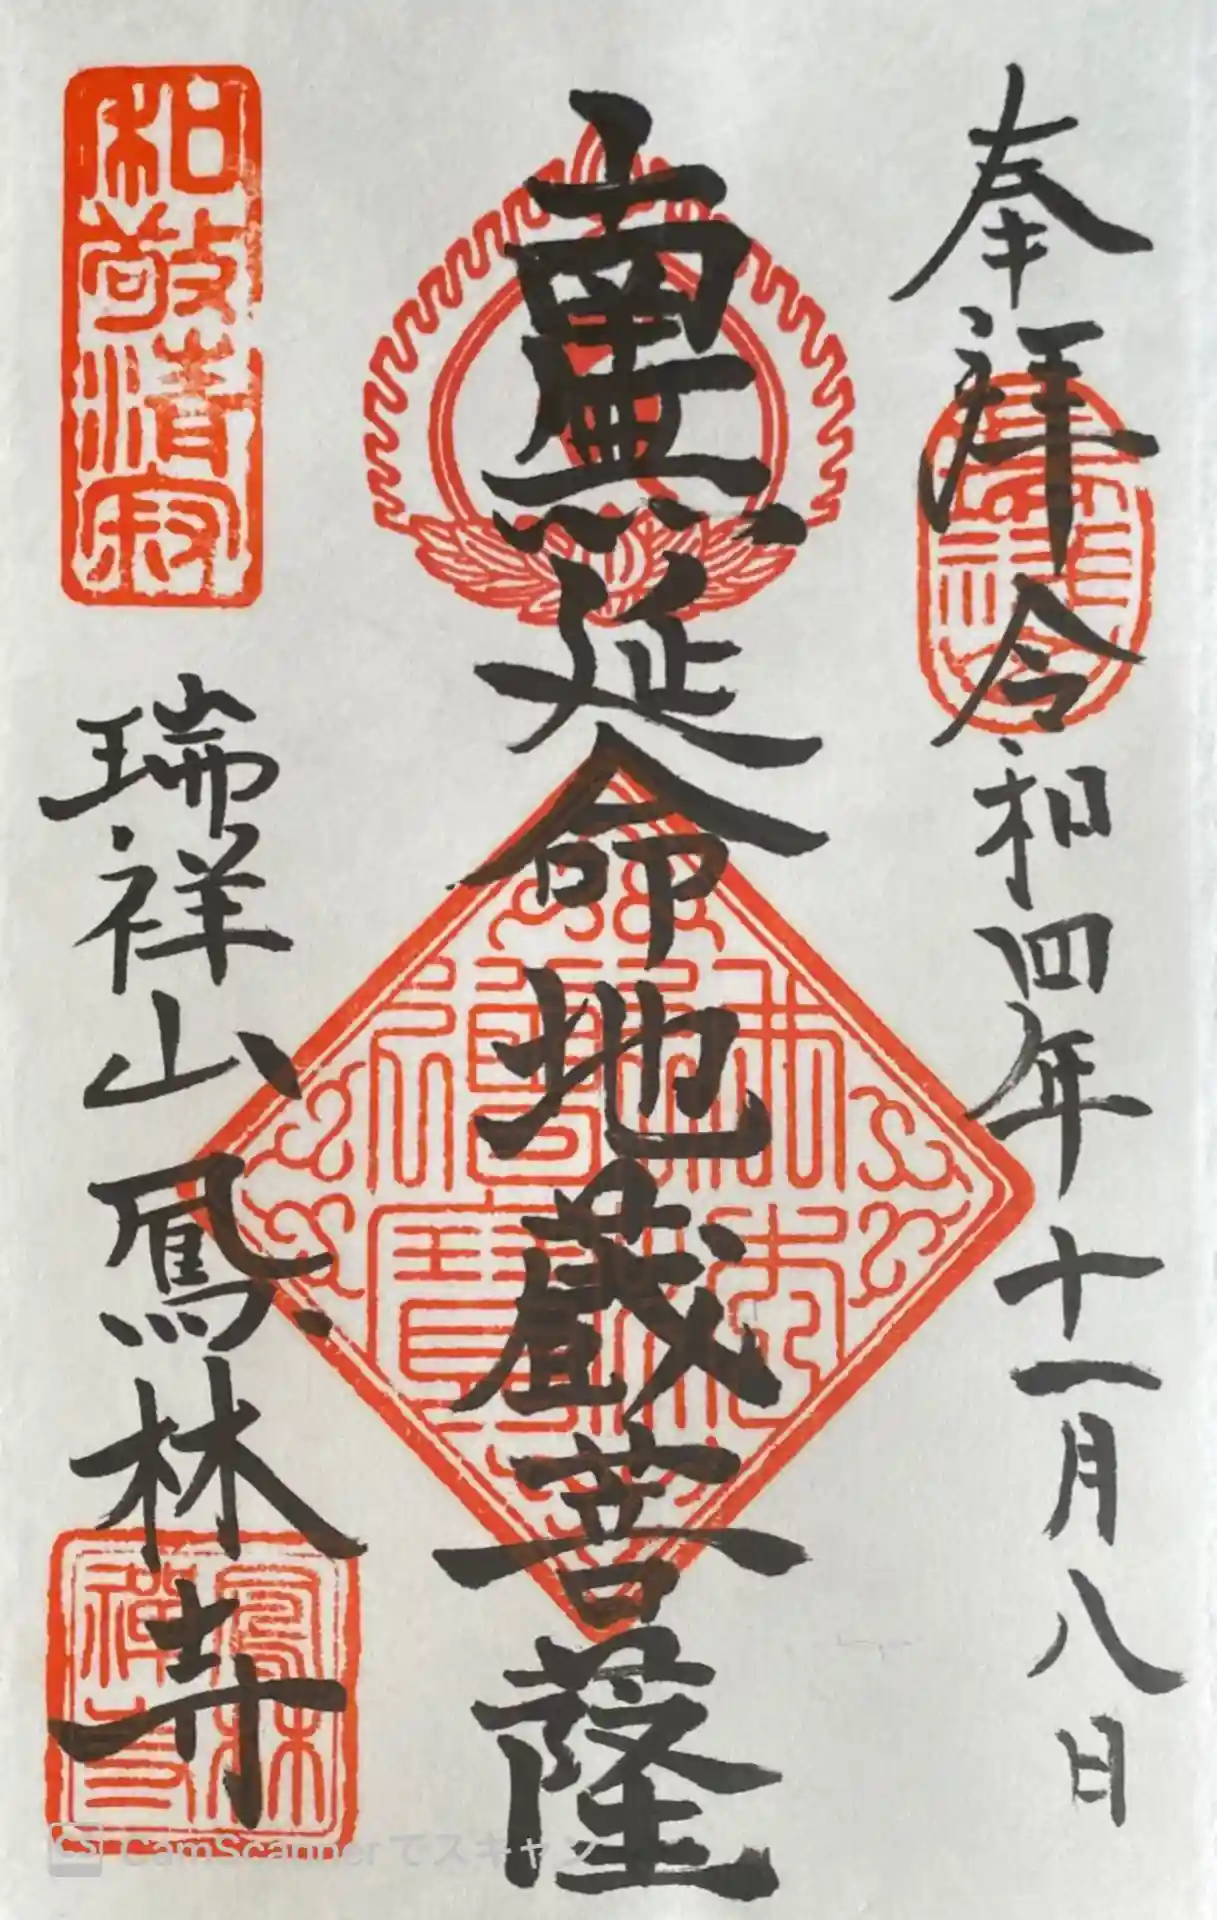 奉拝 令和四年十一月八日
南無延命地蔵菩薩
和敬清寂
瑞祥山 鳳林寺
鳳林禅寺
CamScannerでスキャン